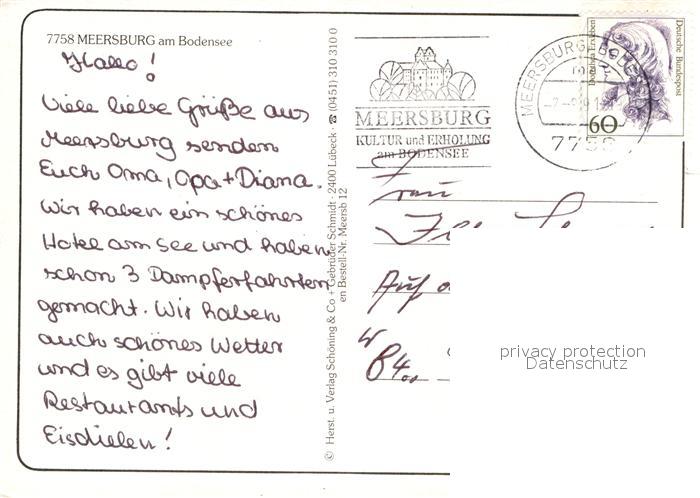 7758 MEERSBURG am Bodensee
Hallo!
Viele liebe Grüße aus
Meersburg senden
Euch Oma, Opa + Diana.
Wir haben ein schönes
Hotel am See und haben
schon 3 Dampferfahrten
gemacht. Wir haben
auch schönes Wetter
und es gibt viele
Restaurants und
Eisdielen!
© Herst. u. Verlag Schöning & Co + Gebrüder Schmidt · 2400 Lübeck · ☎ (0451) 310 310 0
en Bestell-Nr. Meersb 12
MEERSBURG
KULTUR und ERHOLUNG
am BODENSEE
MEERSBURG, BODEN
7758
Dorothea Erxleben
Deutsche Bundespost
60
Frau
Auf
W
84
privacy protection
Datenschutz